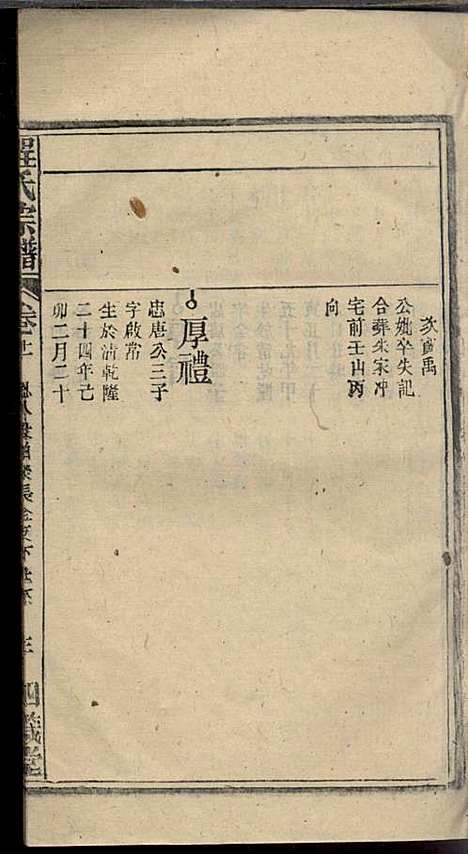 次富禹
公妣卒失記
合葬朱家冲
宅前壬山丙
向
厚禮
忠唐公三子
字啟常
生於清乾隆
二十四年己
卯二月二十
程氏宗譜
卷廿
三
四義堂